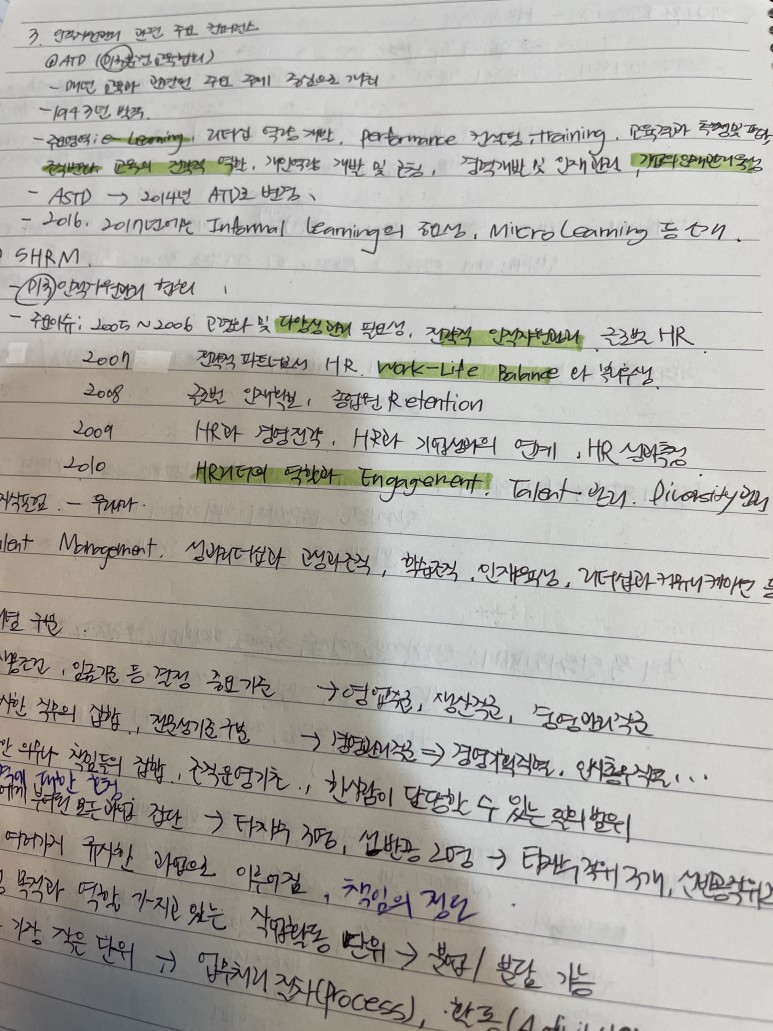 3. 인적자원관리 관련 주요 컨퍼런스
@ATD (미국훈련교육협회)
- 매년 교육이 관련된 주요 주제 중심으로 개최
- 1943년 발족.
- 주요영역: e-Learning, 리더십 역량개발, performance 컨설팅, training, 교육결과 측정 및 평가,
조직변화 교육의 전략적 역할, 개인역량 개발 및 코칭, 경력개발 및 인재관리,
- ASTD → 2014년 ATD로 변경,
- 2016. 2017년에는 Informal Learning의 형성, Micro Learning 등 소개.
SHRM.
- 미국인적자원관리 협회
- 주요이슈: 2005 ~ 2006 고령화 및 다양성관리 필요성, 전략적 인적자원관리, 글로벌 HR
2007 전략적 파트너로서 HR. Work-Life Balance 와 복리후생.
2008 글로벌 인재확보, 종업원 Retention
2009 HR과 경영전략, HR과 기업성과와의 연계, HR 성과측정
2010 HR리더의 역할과 Engagement. Talent 관리. Diversity 관리
포럼. - 우리나라
Management. 성과리더십과 고성과조직, 학습조직, 인재육성, 리더십과 커뮤니케이션 등
구분
임금기준 등 결정 중요기준 → 영업직군, 생산직군, 경영관리직군
직무의 집합, 전문성기준 구분 → 경영관리직군 ⇒ 경영기획직렬, 인사총무직렬...
의무나 책임들의 집합, 조직운영기초., 한사람이 담당할 수 있는 일의 범위
대한
부여된 모든 과업 집단 → 타자수 3명, 선반공 2명 → 타자수직위 3개, 선반공직위 2
여러가지 유사한 과업으로 이루어짐, 책임의 정도
목적과 역할 가지고 있는 작업활동 단위 → 분업/분담 가능
가장 작은 단위 → 업무처리 절차(Process), 활동